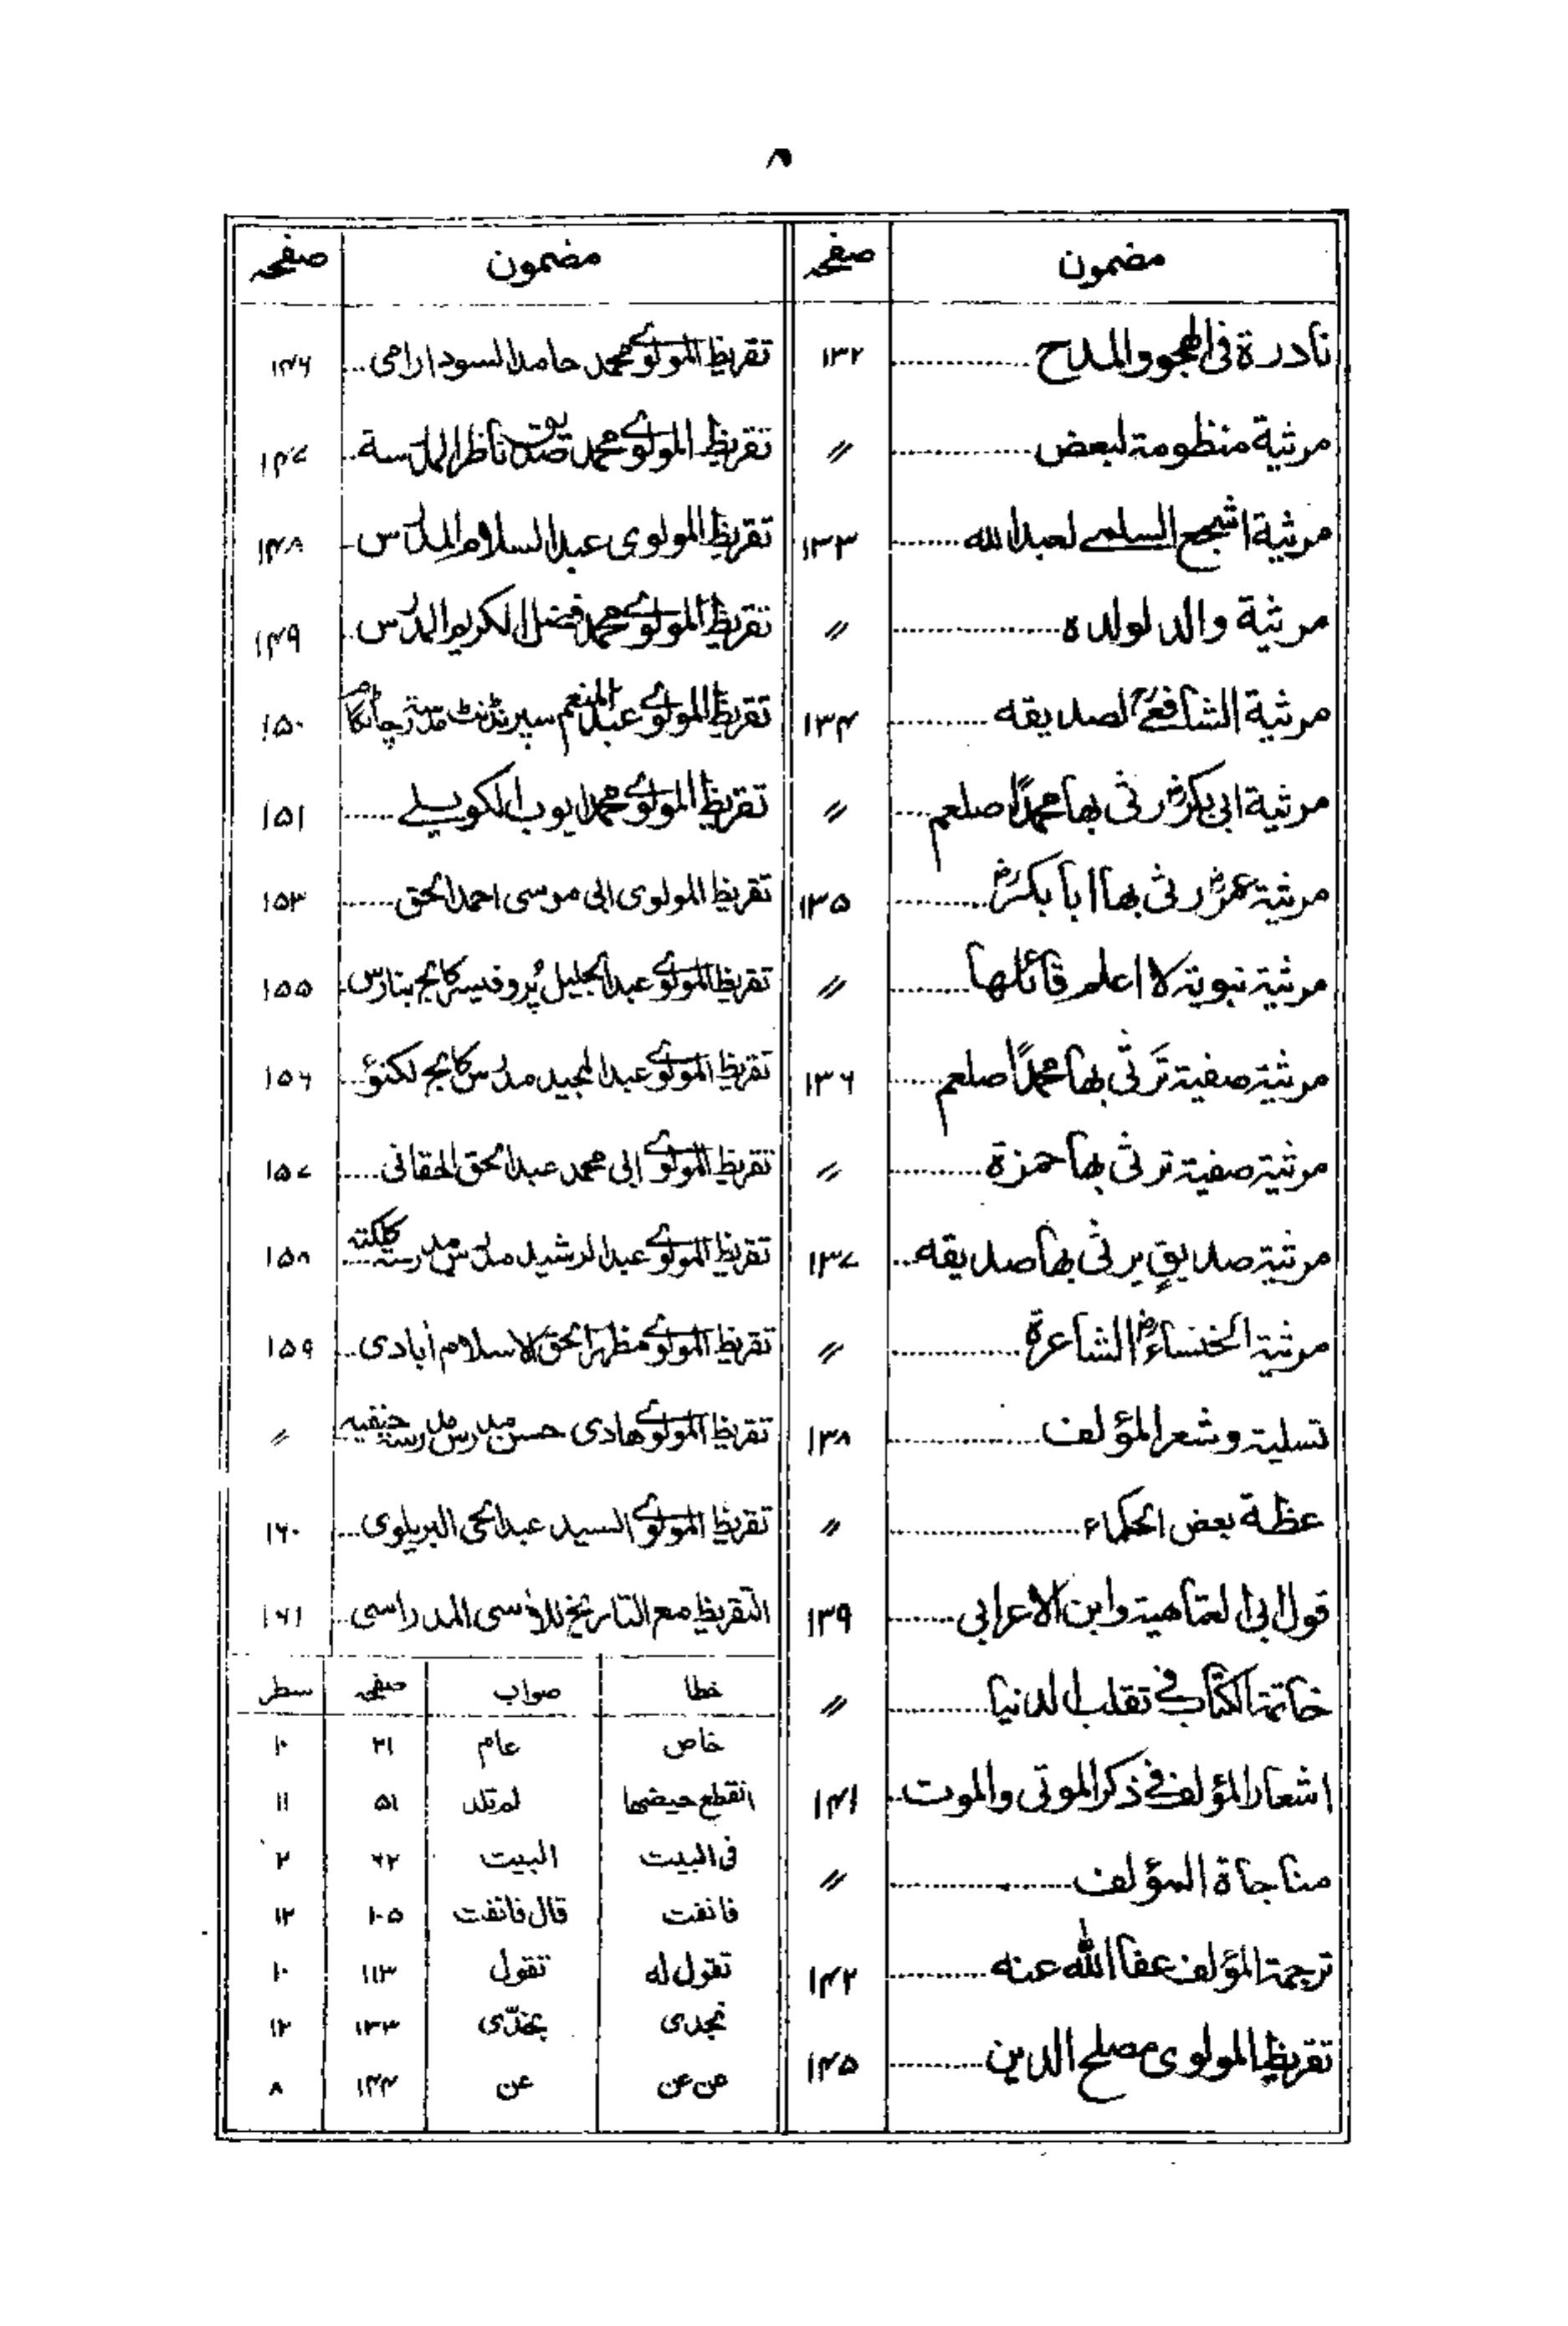 ۸
مضمون صفحہ
نادرة فی الھجو والمدح ۱۳۲
مرثیة منظومة لبعض 〃
مرثیة اشجع السلمی لعبد الله ۱۳۳
مرثیة والد لولده 〃
مرثیة الشافعیؒ لصدیقه ۱۳۴
مرثیة ابی بکرؓ رثی بها محمدًا صلعم 〃
مرثیة عمرؓ رثی بها ابا بکرؓ ۱۳۵
مرثیة نبویة لا اعلم قائلها 〃
مرثیة صفیة تَرثی بها محمدًا صلعم ۱۳۶
مرثیة صفیة ترثی بها حمزة 〃
مرثیة صدیقٍ یرثی بها صدیقه ۱۳۷
مرثیة الخنساءؓ الشاعرة 〃
تسلیة وشعر المؤلف ۱۳۸
عظة بعض الحکماء 〃
قول ابی العتاهیة وابن الاعرابی ۱۳۹
خاتمة الکتاب فی تقلب الدنیا 〃
اشعار المؤلف فی ذکر الموتی والموت ۱۴۱
مناجاة المؤلف 〃
ترجمة المؤلف عفا الله عنه ۱۴۲
تقریظ المولوی مصلح الدین ۱۴۵
مضمون صفحہ
تقریظ المولوی محمد حامد السودارامی ۱۴۶
تقریظ المولوی محمد صدیق ناظر المدرسة ۱۴۷
تقریظ المولوی عبد السلام المدرس ۱۴۸
تقریظ المولوی محمد فضل الکریم المدرس ۱۴۹
تقریظ المولوی عبد المنعم سپرنڈنٹ مدرسہ چاٹگام ۱۵۰
تقریظ المولوی محمد ایوب الکویلی ۱۵۱
تقریظ المولوی ابی موسی احمد الحق ۱۵۳
تقریظ المولوی عبد الجلیل پُروفیسر کالج بنارس ۱۵۵
تقریظ المولوی عبد المجید مدرس کالج لکنؤ ۱۵۶
تقریظ المولوی ابی محمد عبد الحق الحقانی ۱۵۷
تقریظ المولوی عبد الرشید مدرس مدرسہ کلکتہ ۱۵۸
تقریظ المولوی مظهر الحق الاسلام آبادی ۱۵۹
تقریظ المولوی هادی حسن مدرس مدرسہ حنفیہ 〃
تقریظ المولوی السید عبد الحی البریلوی ۱۶۰
التقریظ مع التاریخ للاوسی المدراسی ۱۶۱
خطا صواب صفحہ سطر
خاص عام ۳۱ ۱۰
انقطع حیضها لم تلد ۵۱ ۱۱
فی البیت البیت ۶۲ ۲
فانفت قال فانفت ۱۰۵ ۱۲
تقول له تقول ۱۱۳ ۱۰
نجدی ۱۳۳ ۱۲
عن عن عن ۱۴۴ ۸